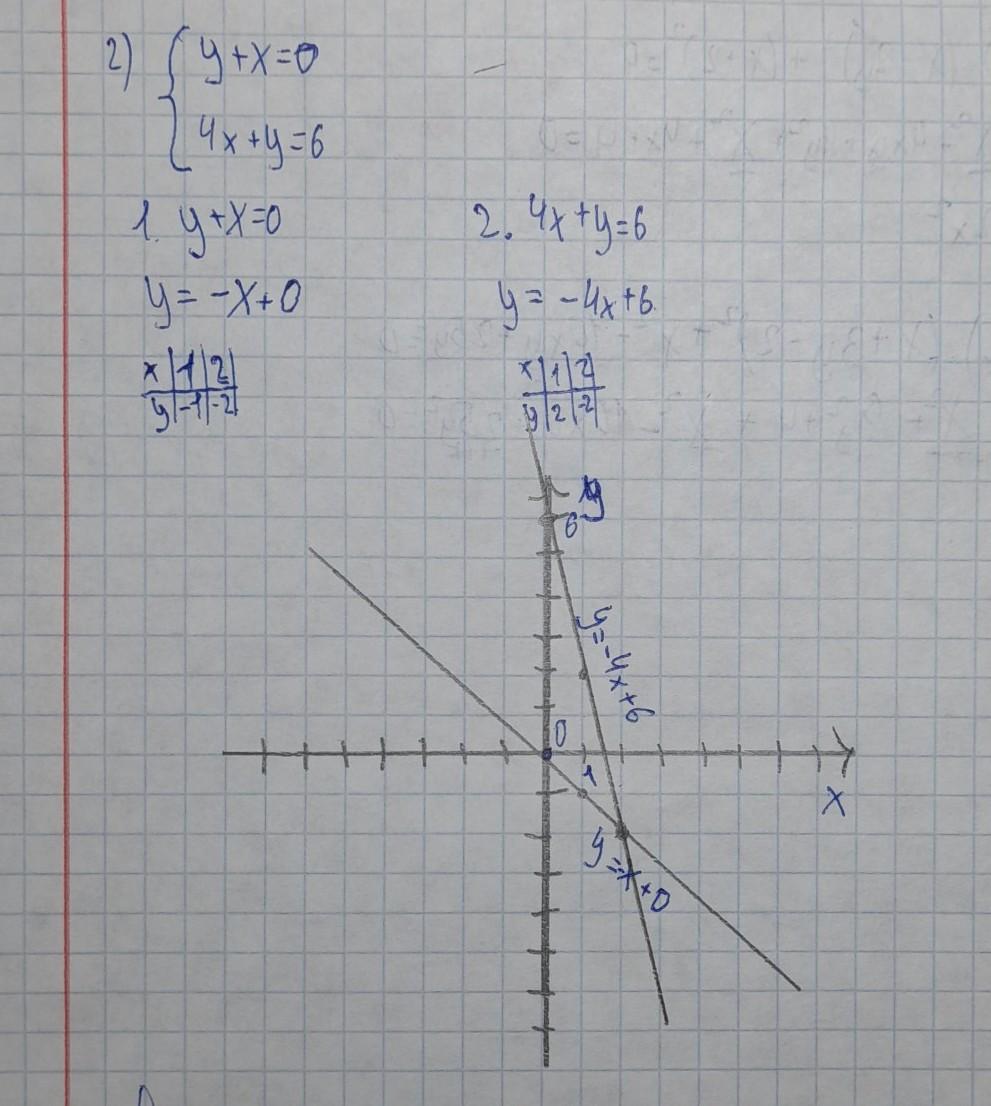 2) { y+x=0
4x+y=6
1. y+x=0
2. 4x+y=6
y= -x+0
y= -4x+6
x|1|2|
y|-1|-2|
x|1|2|
y|2|-2|
y
6
y=-4x+6
0
1
x
y=-x+0